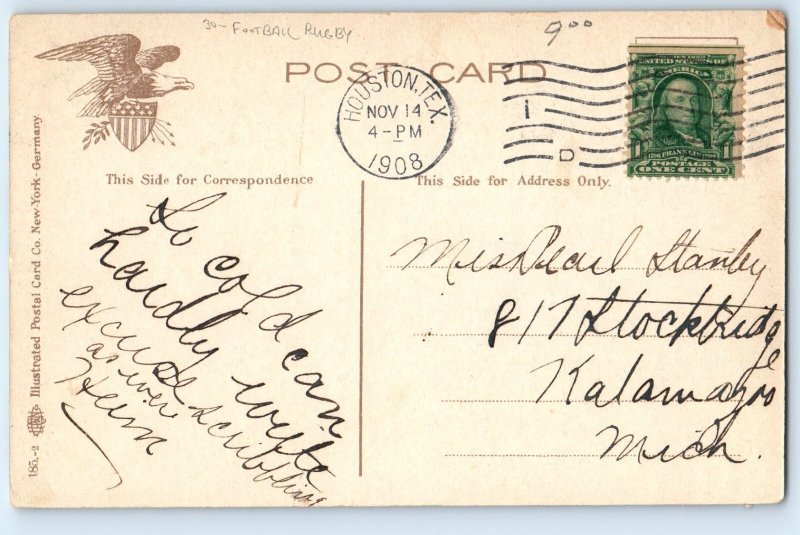 30- FOOTBALL RUGBY
9.00
POST CARD
HOUSTON, TEX.
NOV 14
4-PM
1908
1
D
UNITED STATES OF
AMERICA
FRANKLIN
POSTAGE
1 ONE CENT 1
This Side for Correspondence
This Side for Address Only.
So cold can
hardly write
excuse scribbling
as ever
Miss Pearl Stanley
817 Stockbridge
Kalamazoo
Mich.
185.-2 Illustrated Postal Card Co. New-York - Germany